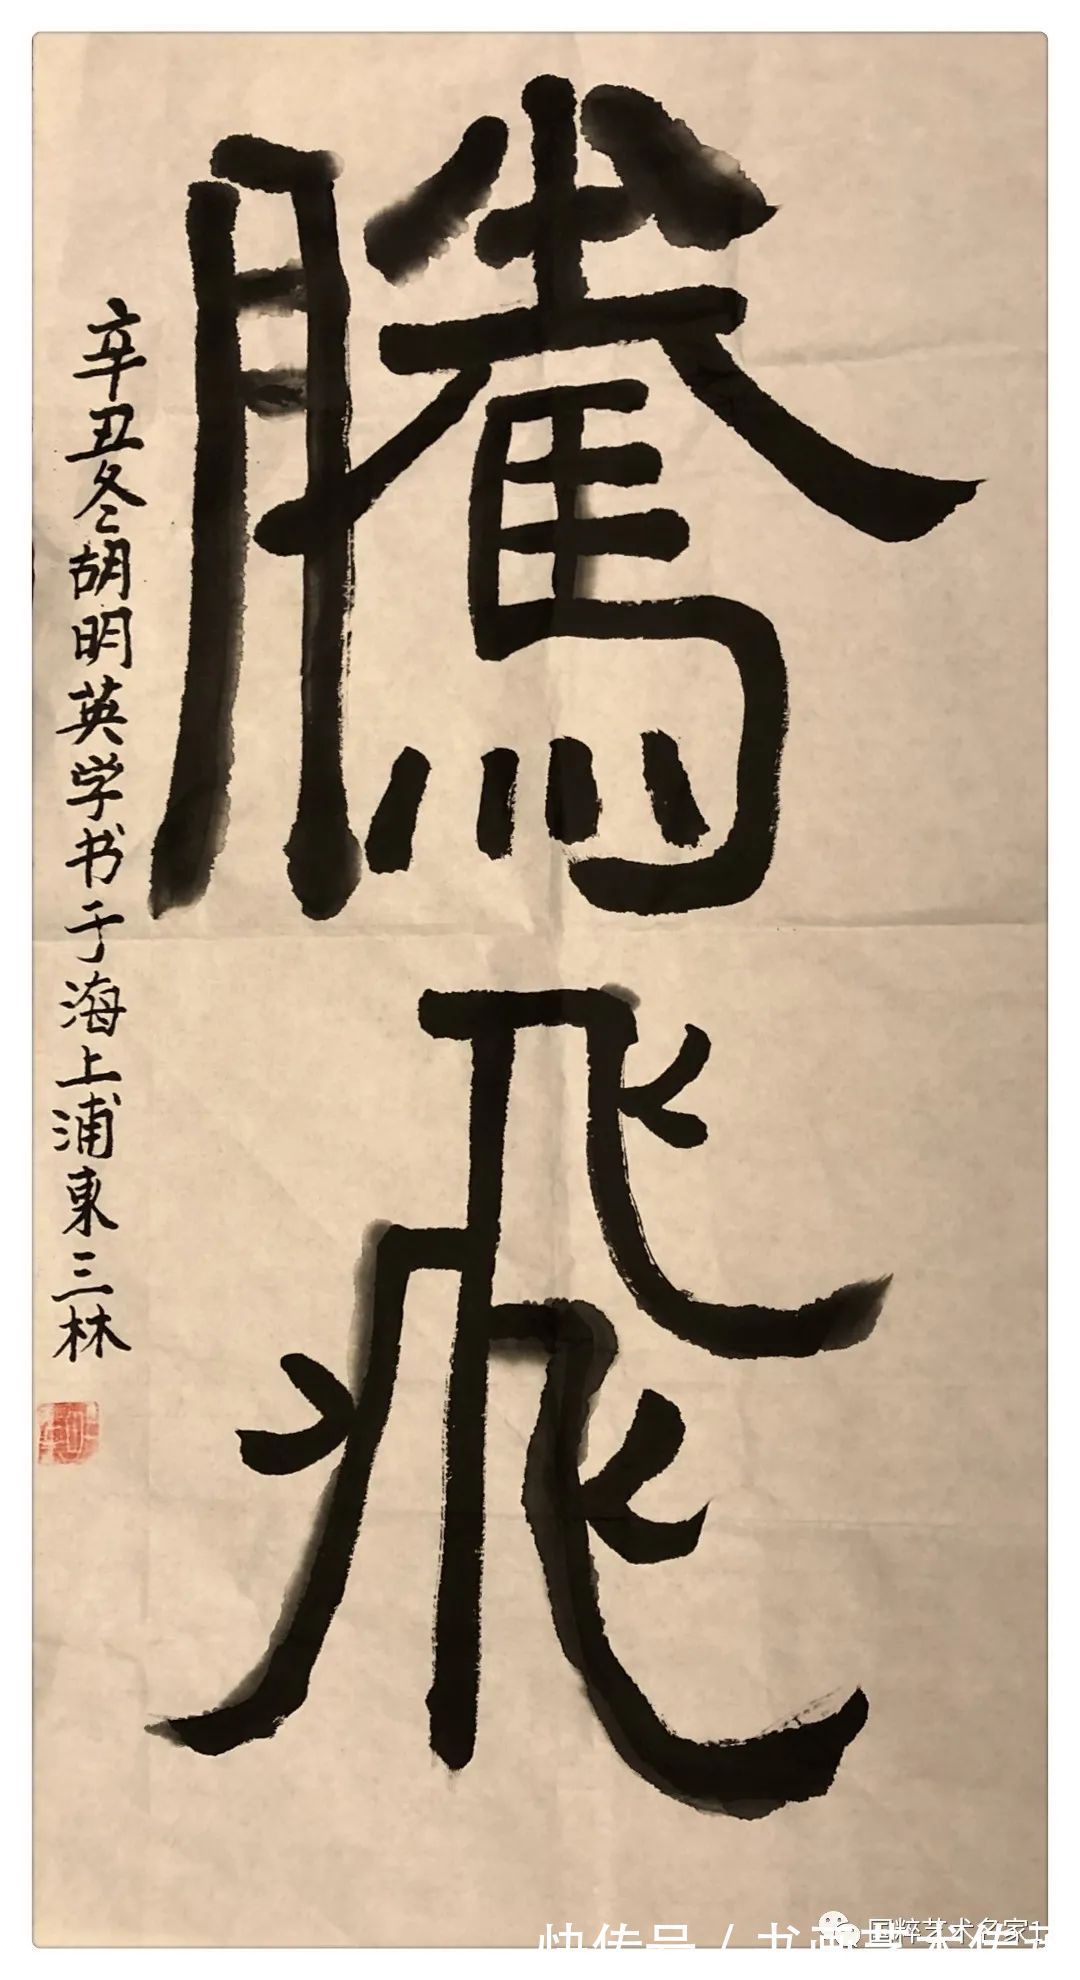 騰飛
辛丑冬胡明英学书于海上浦東三林
国粹艺术名家1
快传号 / 书画艺术传